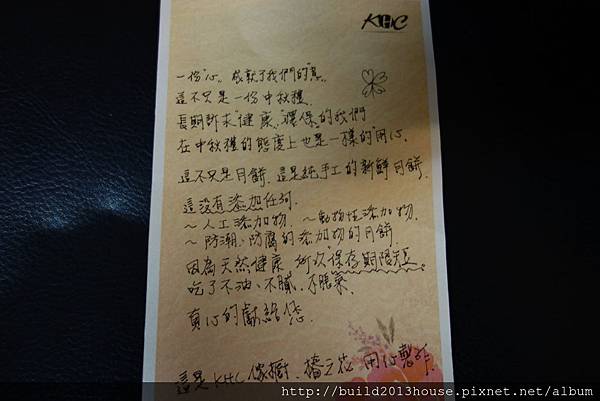 KHC
一份"心"。成就了我們的"意"。
這不只是一份中秋禮.
長期訴求"健康"、"環保"的我們
在中秋禮的態度上也是一樣的"用心".
這不只是月餅. 這是純手工的新鮮月餅.
這沒有添加任何.
~人工添加物. ~動物性添加物.
~防潮、防腐的添加物的月餅.
因為天然健康 所以"保存期限短"。
吃了不油、不膩、不脹氣.
真心的獻給您.
這是 KHC 傢櫥. 用心製作.
http://build2013house.pixnet.net/album